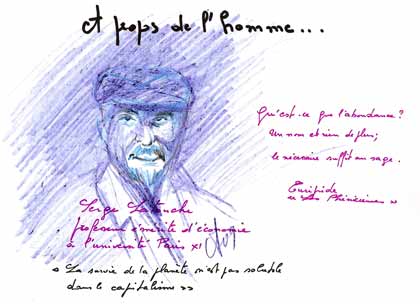 et props de l'homme...
Qu'est-ce que l'abondance?
Un nom et rien de plus;
le nécessaire suffit au sage.
Euripide
"Les Phéniciennes"
Serge Latouche
professeur émérite d'économie
à l'université Paris XI
« La survie de la planète n'est pas soluble
dans le capitalisme »